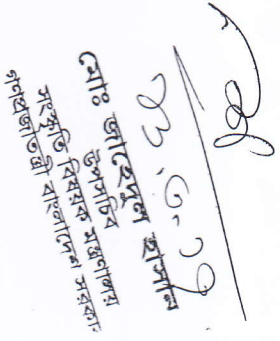 মোঃ জাহেদুল হাসান
উপসচিব
সংস্কৃতি বিষয়ক মন্ত্রণালয়
গণপ্রজাতন্ত্রী বাংলাদেশ সরকা